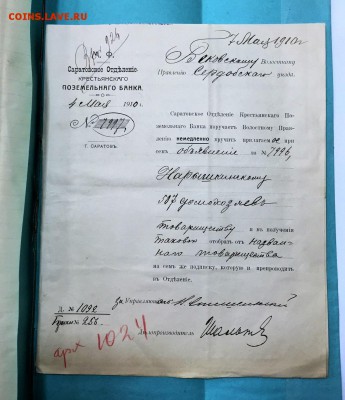 COINS.LAVE.RU
7 Мая 1910 г.
Саратовское Отдѣленіе
КРЕСТЬЯНСКАГО
ПОЗЕМЕЛЬНАГО БАНКА.
4 Мая 1910 г.
№
Г. САРАТОВЪ.
Бековскому Волостному
Правленію Сердобскаго уѣзда.
Саратовское Отдѣленіе Крестьянскаго По-
земельнаго Банка поручаетъ Волостному Прав-
ленію немедленно вручить прилагаемое при
семъ объявленіе за № 7996,
Нарышкинскому
домохозяевъ
товариществу и въ полученіи
таковой отобрать отъ назван-
наго товарищества
на семъ же подписку, которую и препроводить
въ Отдѣленіе.
за Управляющаго
Д. № 1092
256
Дѣлопроизводитель
арх 1024